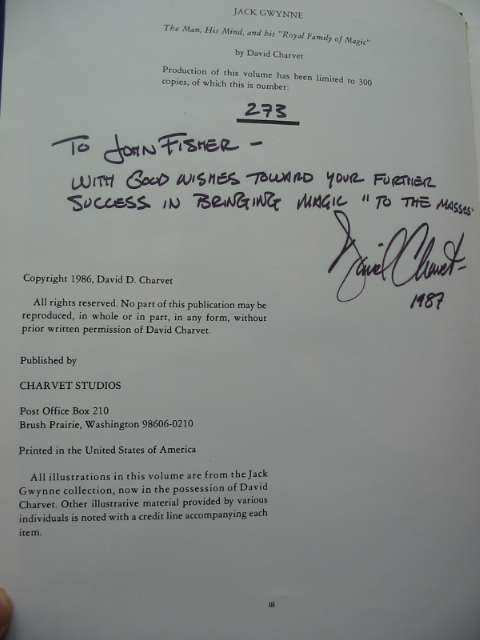 JACK GWYNNE
The Man, His Mind, and his "Royal Family of Magic"
by David Charvet
Production of this volume has been limited to 300
copies, of which this is number:
273
TO JOHN FISHER –
WITH GOOD WISHES TOWARD YOUR FURTHER
SUCCESS IN BRINGING MAGIC "TO THE MASSES"
David Charvet
1987
Copyright 1986, David D. Charvet
All rights reserved. No part of this publication may be
reproduced, in whole or in part, in any form, without
prior written permission of David Charvet.
Published by
CHARVET STUDIOS
Post Office Box 210
Brush Prairie, Washington 98606-0210
Printed in the United States of America
All illustrations in this volume are from the Jack
Gwynne collection, now in the possession of David
Charvet. Other illustrative material provided by various
individuals is noted with a credit line accompanying each
item.
iii